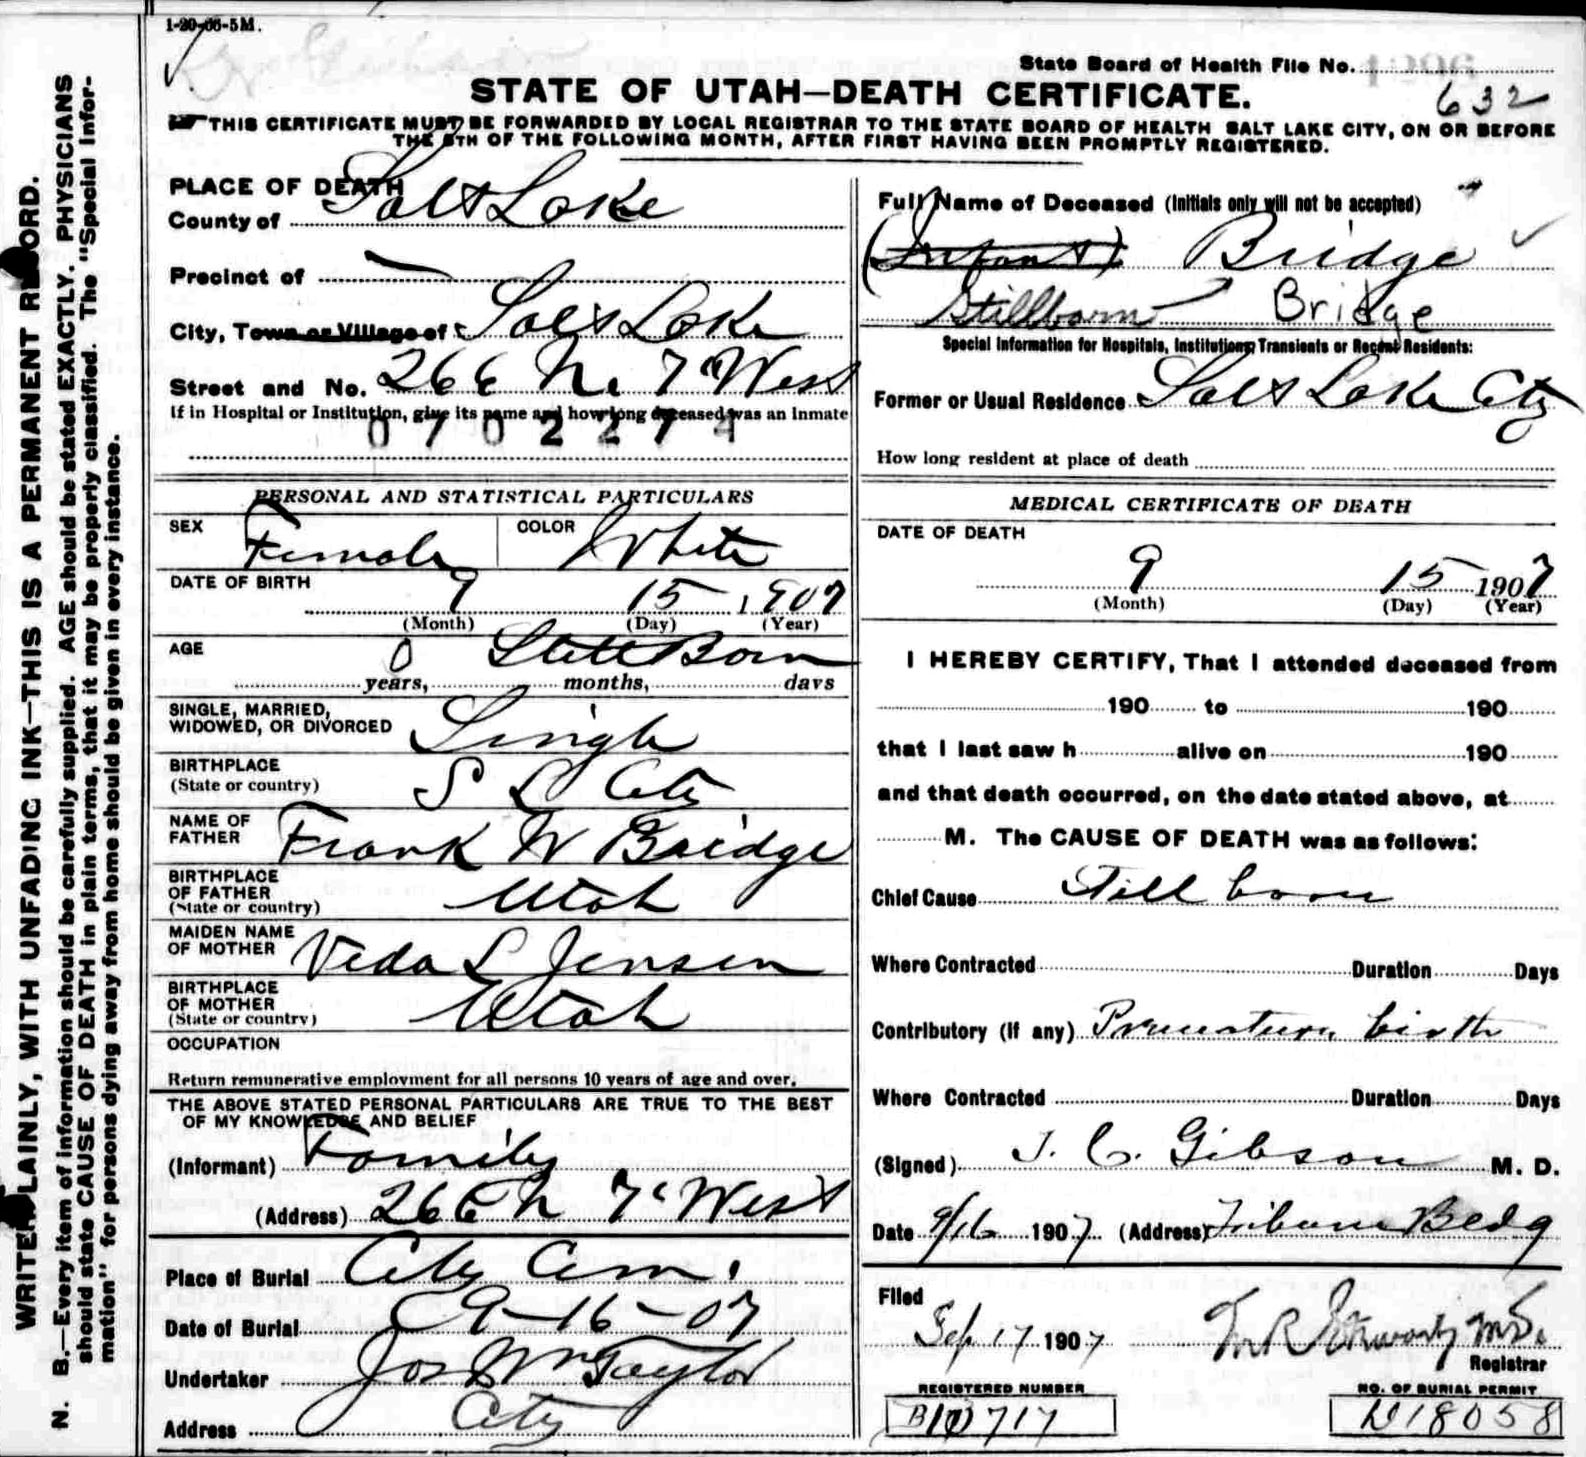 1-20-06-5M.
State Board of Health File No.
632
STATE OF UTAH—DEATH CERTIFICATE.
THIS CERTIFICATE MUST BE FORWARDED BY LOCAL REGISTRAR TO THE STATE BOARD OF HEALTH SALT LAKE CITY, ON OR BEFORE
THE 5TH OF THE FOLLOWING MONTH, AFTER FIRST HAVING BEEN PROMPTLY REGISTERED.
WRITE PLAINLY, WITH UNFADING INK—THIS IS A PERMANENT RECORD.
N. B.—Every item of information should be carefully supplied. AGE should be stated EXACTLY. PHYSICIANS
should state CAUSE OF DEATH in plain terms, that it may be properly classified. The "Special Infor-
mation" for persons dying away from home should be given in every instance.
PLACE OF DEATH
County of Salt Lake
Precinct of
City, Town or Village of Salt Lake
Street and No. 266 N. 7" West
If in Hospital or Institution, give its name and how long deceased was an inmate
0702274
PERSONAL AND STATISTICAL PARTICULARS
SEX Female COLOR White
DATE OF BIRTH 9 15 1907
(Month) (Day) (Year)
AGE 0 Still Born
years, months, days
SINGLE, MARRIED,
WIDOWED, OR DIVORCED Single
BIRTHPLACE
(State or country) S L City
NAME OF
FATHER Frank W Bridge
BIRTHPLACE
OF FATHER Utah
(State or country)
MAIDEN NAME
OF MOTHER Veda L Jensen
BIRTHPLACE
OF MOTHER Utah
(State or country)
OCCUPATION
Return remunerative employment for all persons 10 years of age and over.
THE ABOVE STATED PERSONAL PARTICULARS ARE TRUE TO THE BEST
OF MY KNOWLEDGE AND BELIEF
(Informant) Family
(Address) 266 N 7" West
Place of Burial City Cem.
Date of Burial 9-16-07
Undertaker Jos Wm Taylor
Address City
Full Name of Deceased (Initials only will not be accepted)
(Infant) Bridge
Stillborn Bridge
Special Information for Hospitals, Institutions, Transients or Recent Residents:
Former or Usual Residence Salt Lake City
How long resident at place of death
MEDICAL CERTIFICATE OF DEATH
DATE OF DEATH
9 15 1907
(Month) (Day) (Year)
I HEREBY CERTIFY, That I attended deceased from
190 to 190
that I last saw h alive on 190
and that death occurred, on the date stated above, at
M. The CAUSE OF DEATH was as follows:
Chief Cause Still born
Where Contracted Duration Days
Contributory (If any) Premature birth
Where Contracted Duration Days
(Signed) J. C. Gibson M. D.
Date 9/16 1907 (Address) Tribune Bldg
Filed
Sep 17 1907 M.D.
Registrar
REGISTERED NUMBER
B10717
NO. OF BURIAL PERMIT
18058